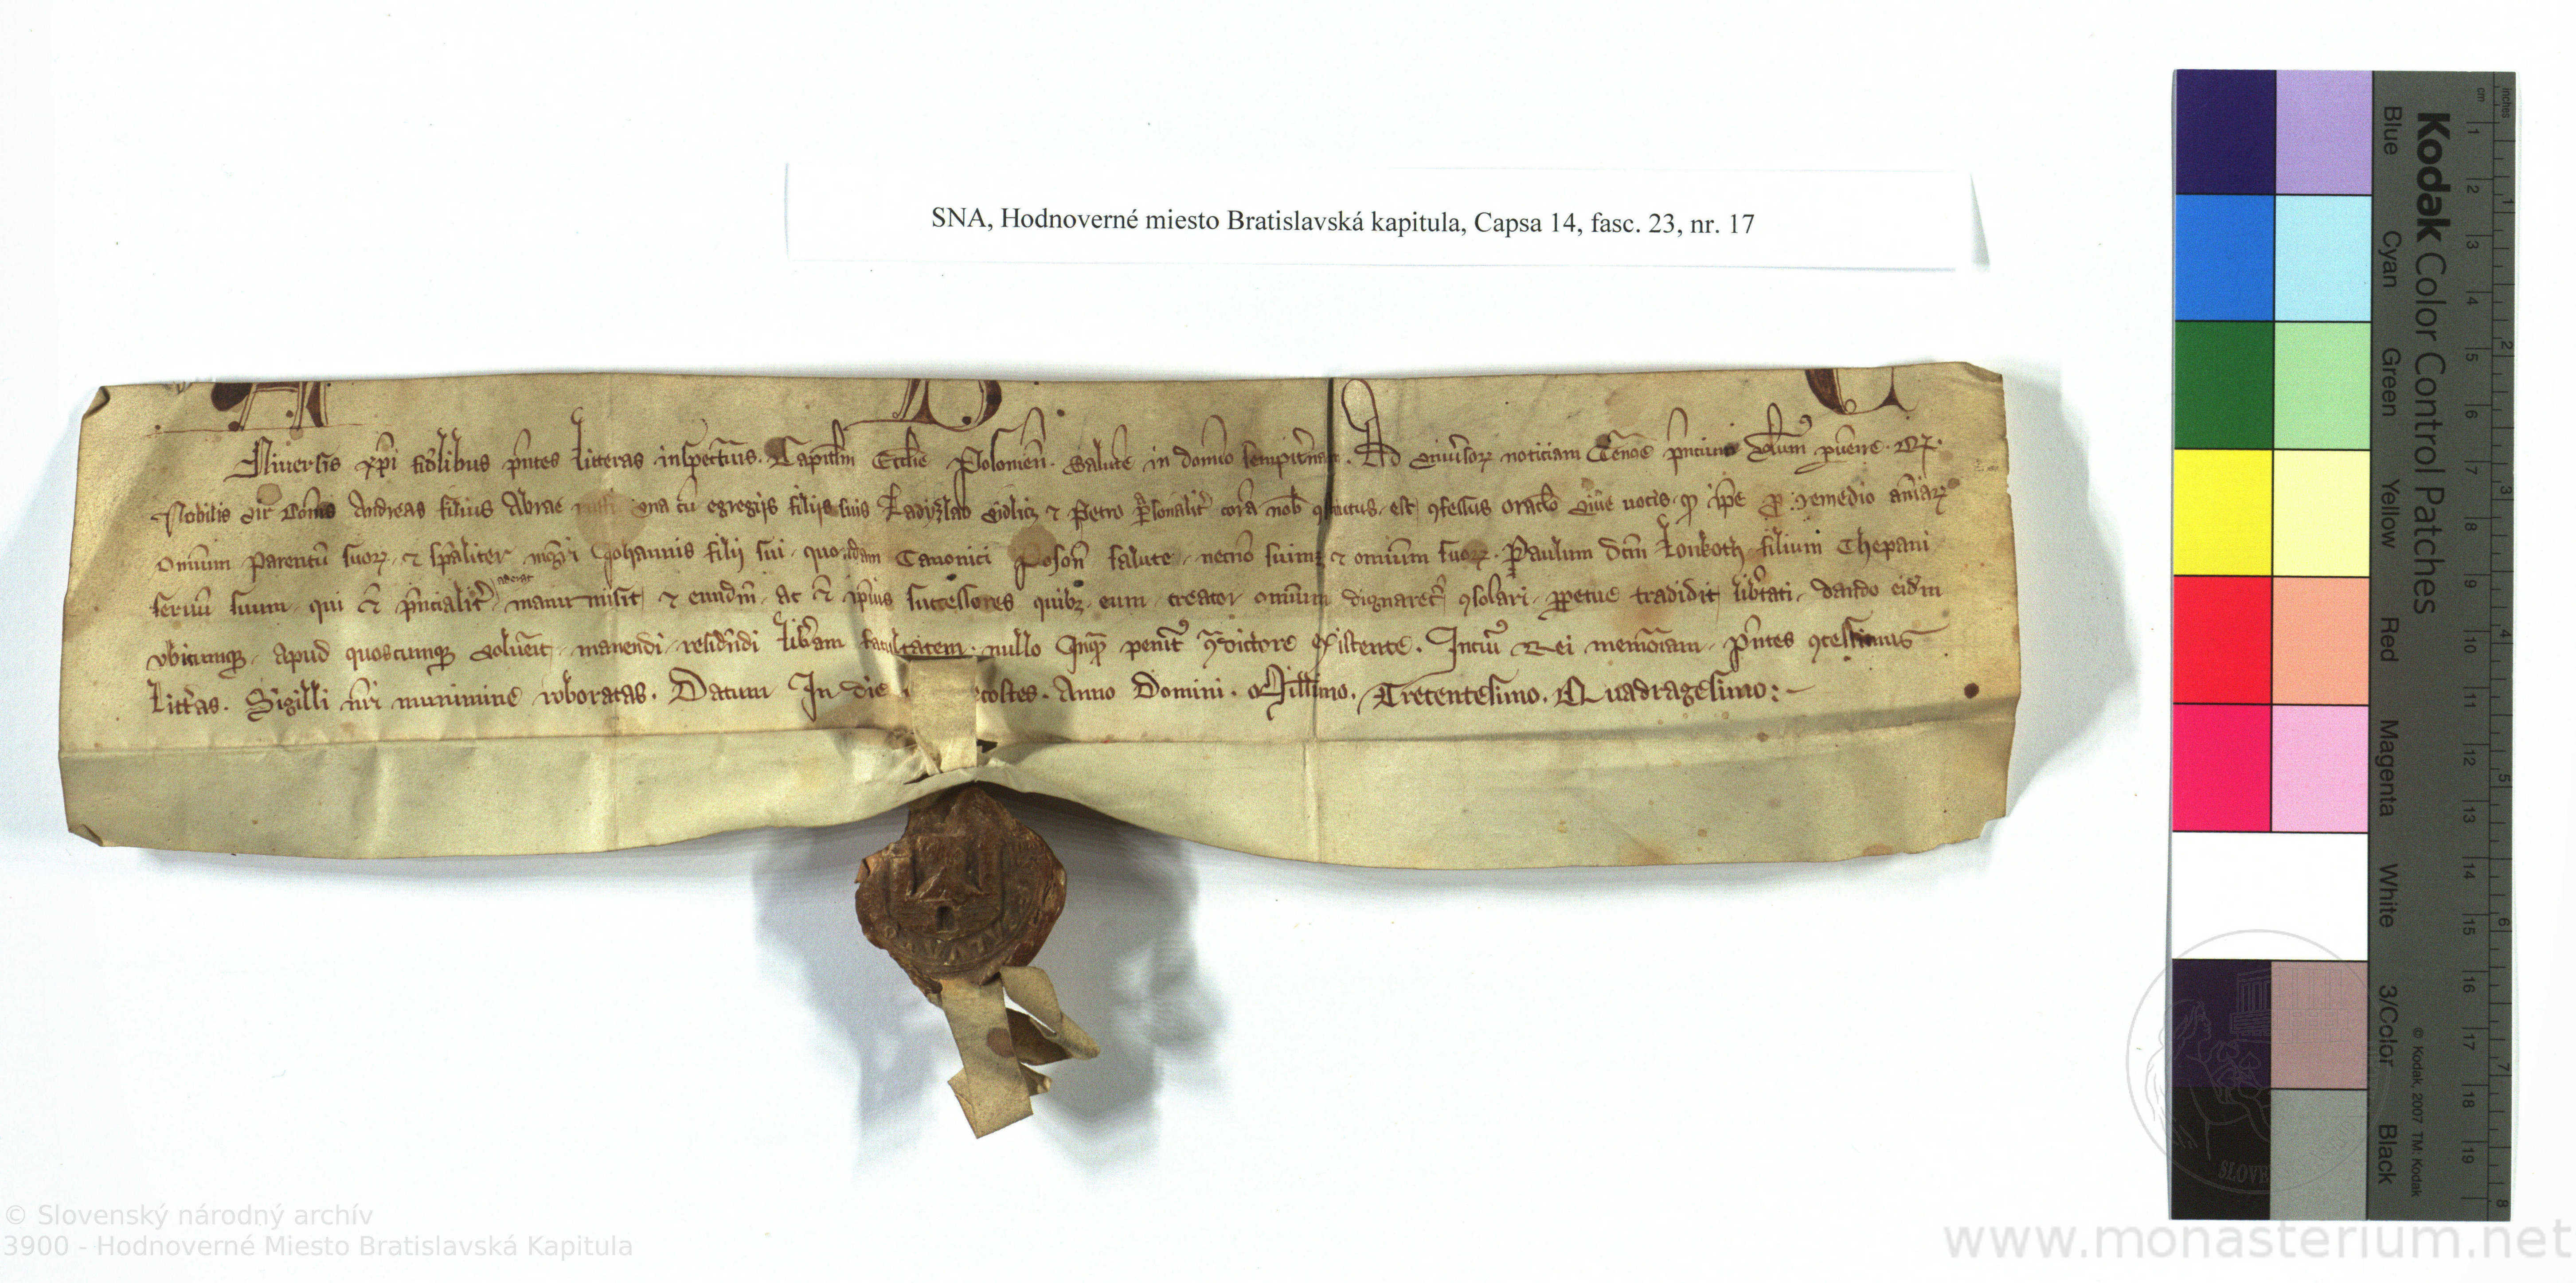 SNA, Hodnoverné miesto Bratislavská kapitula, Capsa 14, fasc. 23, nr. 17
A B C
Niuersis xpi fidelibus pntes litteras inspecturis. Capitlm Ecclie Posonien. Salute in domino sempiternam. Ad vniuersorz noticiam tenore pncium volum' puenire. Qz
Nobilis vir Comes Andreas filius Abrae vna cu egregijs filijs suis Ladizlao Vidlicz et Petro psonalit cora nob est 9fessus oraclo viue uocis q ipse pro remedio aniarz
omium parentu suorz et spaliter mgri Johannis filij sui quondam Canonici Poson salute necno suimz et omium suorz Paulum dcm Lonkoth filium Thepani
seruu suum qui pncialit aderat manumisit et eundm ac ipius successores quibz eum creator omium dignaret 9solari ppetue tradidit libtati dando eidm
vbicumqz apud quoscumqz voluerit manendi residndi libam facultatem nullo penit' 9tdictore existente. In cui' Rei memoriam pntes 9cessimus
Litteras. Sigilli nri munimine roboratas. Datum In die costes. Anno Domini. Millimo. Trecentesimo. Quadragesimo:
Kodak Color Control Patches
Blue Cyan Green Yellow Red Magenta White 3/Color Black
© Kodak, 2007 TM: Kodak
cm 1 2 3 4 5 6 7 8 9 10 11 12 13 14 15 16 17 18 19
inches 1 2 3 4 5 6 7 8
© Slovenský národný archív
3900 - Hodnoverné Miesto Bratislavská Kapitula
www.monasterium.net